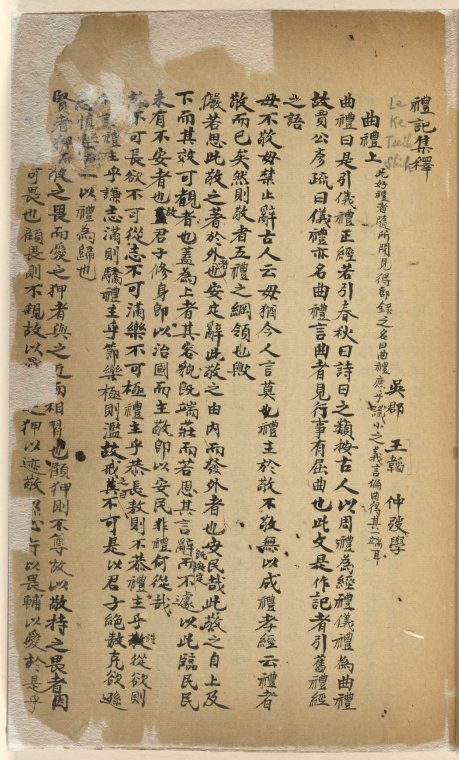 禮記集釋
Le Ke Tseih Shih
吳郡 王韜 仲弢學
曲禮上 此好禮者隨所聞見得即錄之名曰曲禮
曲禮曰是引儀禮正經若引春秋曰詩曰之類按古人以周禮為經禮儀禮為曲禮
故賈公彥疏曰儀禮亦名曲禮言曲者見行事有屈曲也此文是作記者引舊禮經
之語
毋不敬毋禁止辭古人云毋猶今人言莫也禮主於敬不敬無以成禮孝經云禮者
敬而已矣然則敬者五禮之綱領也歟
儼若思此敬之著於外也安定辭此敬之由內而發外者也安民哉此敬之自上及
下而其效可觀者也蓋為上者其容貌既端莊而若思其言辭既安定而不遽以此臨民民
未有不安者也故君子修身即以治國而主敬即以安民非禮何從哉
敖不可長欲不可從志不可滿樂不可極禮主乎恭長敖則不恭禮主乎 從欲則
禮主乎謙志滿則驕禮主乎節樂極則濫故戒之曰其不可是以君子絕敖克欲遜
志 以禮為歸也
賢者狎而敬之畏而愛之狎者與之近而相習也顧狎則不尊故以敬持之畏者因
可畏也顧畏則不親故以 之狎以迹敬以心 以畏輔以愛於是乎